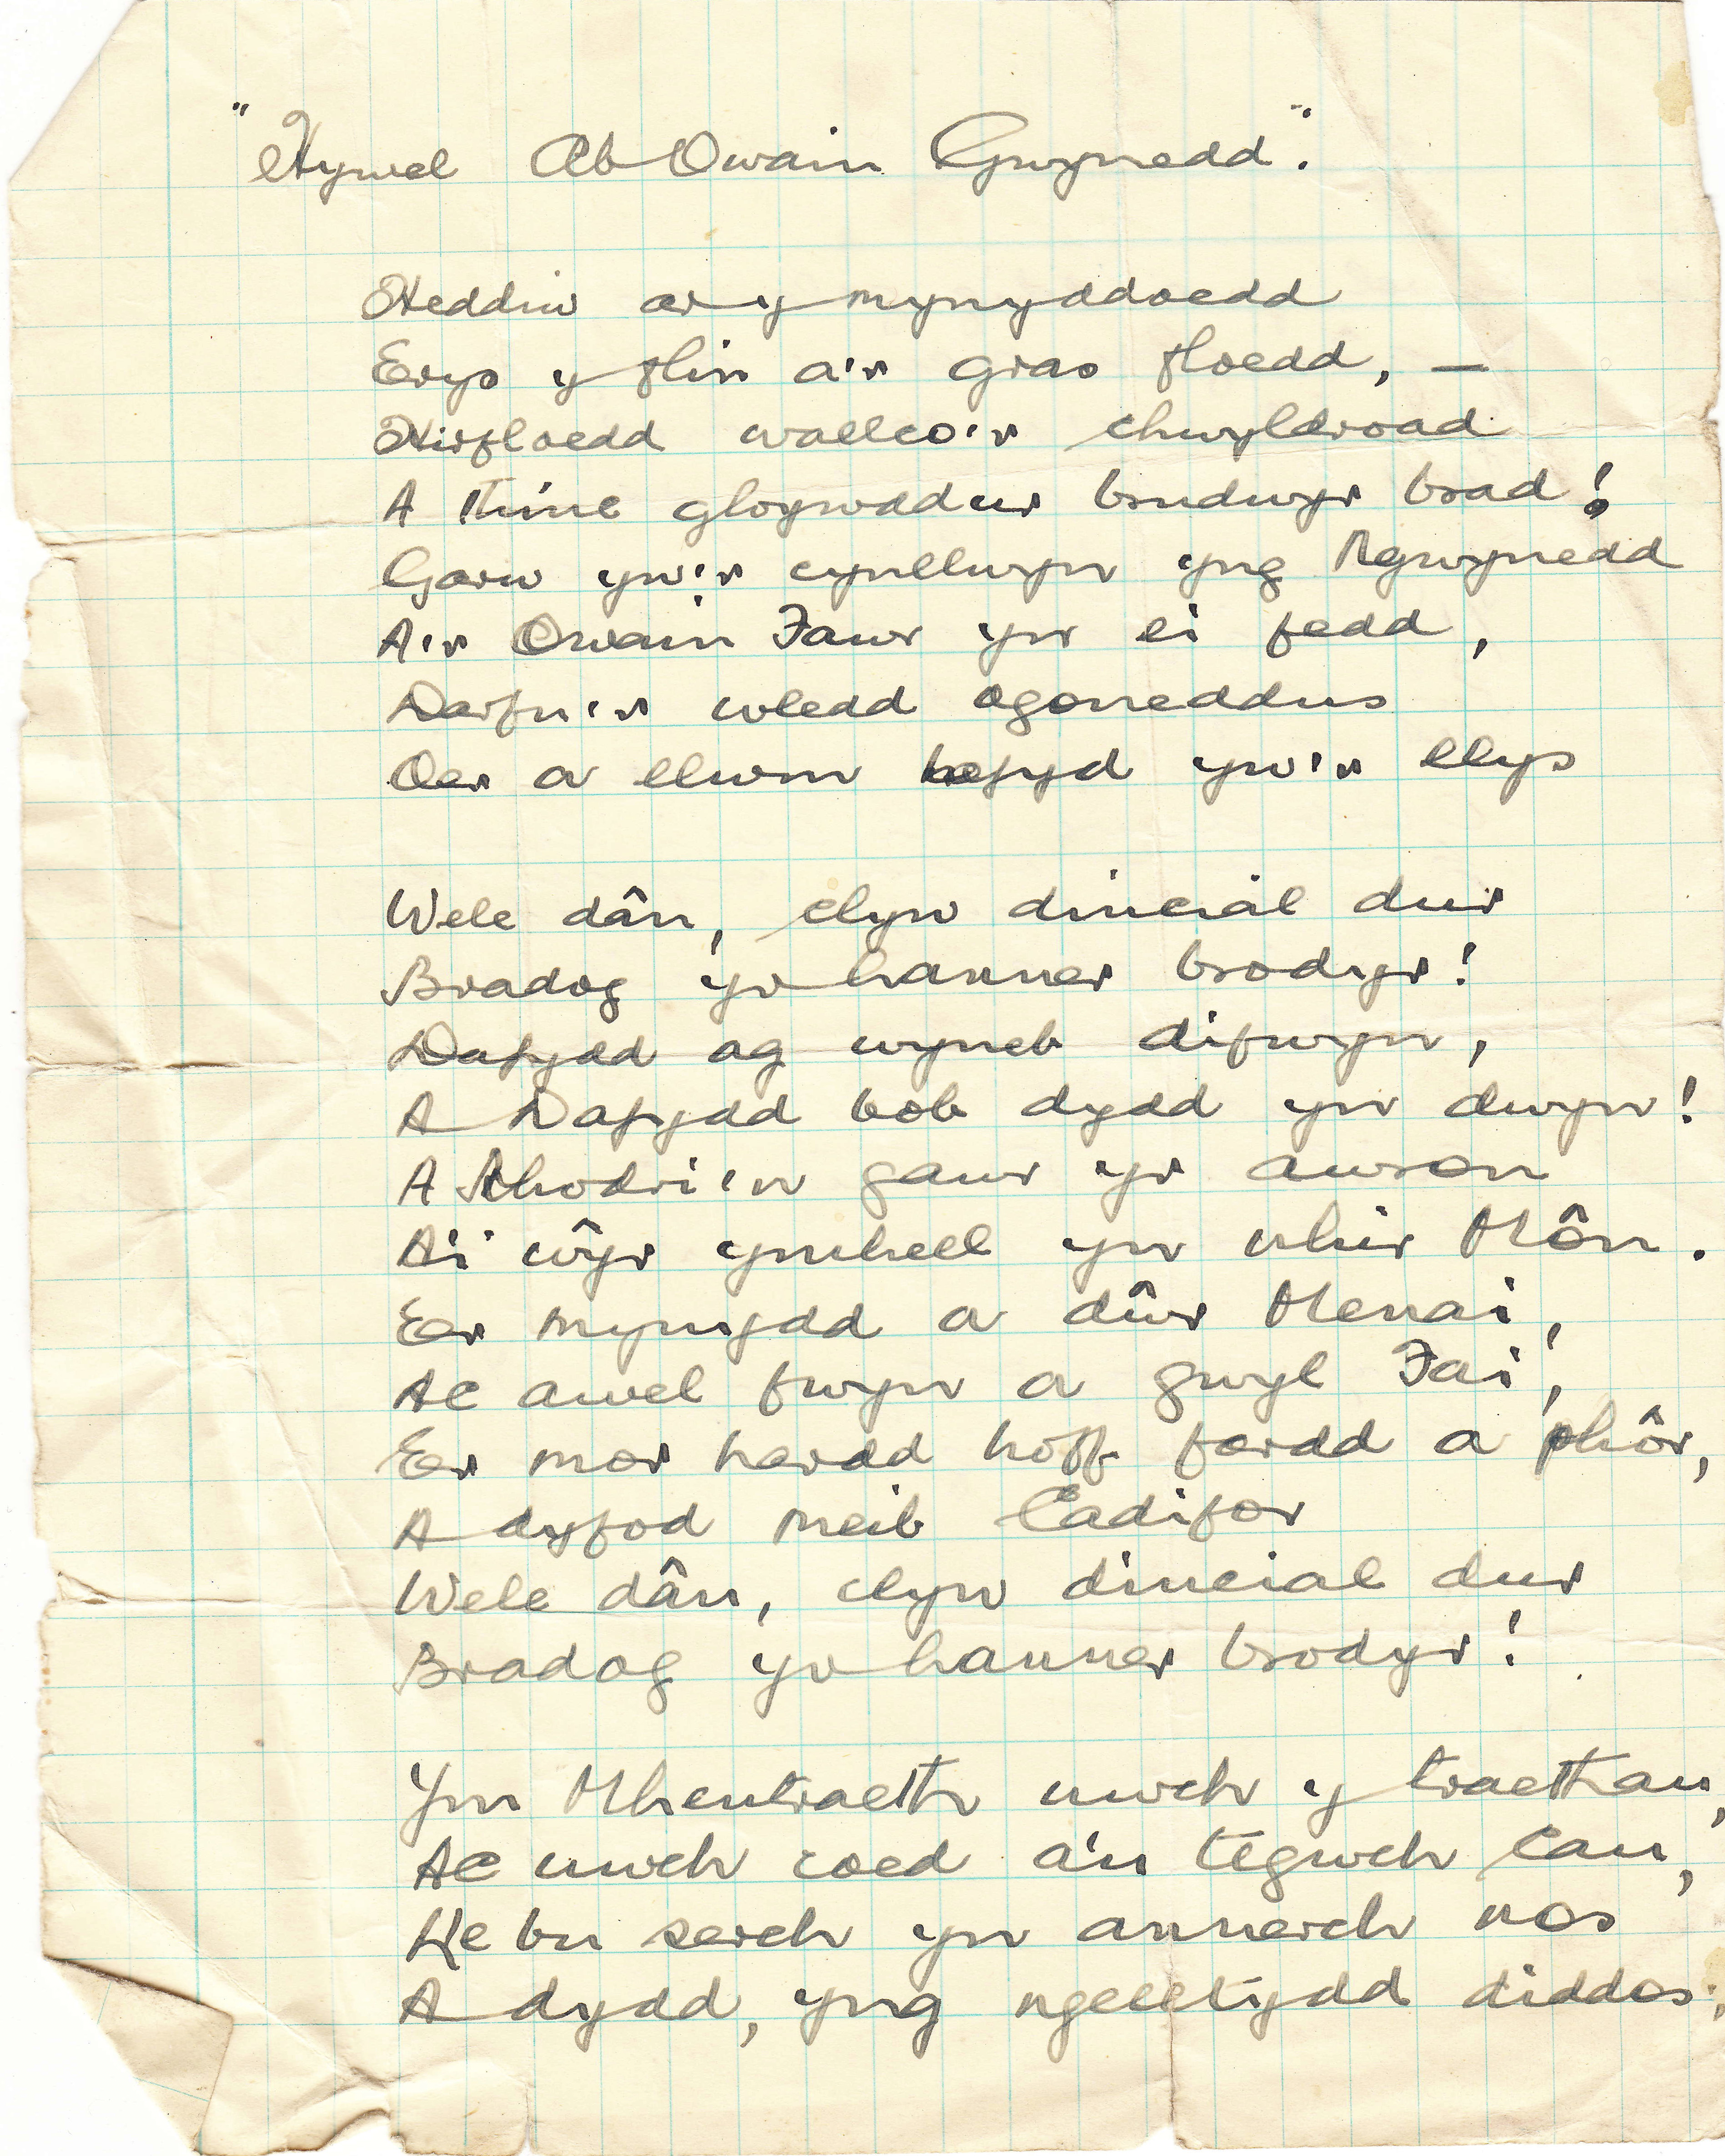 "Hywel Ab Owain Gwynedd".
Heddiw ar y mynyddoedd
Erys y flin a'r gras floedd, —
Hirfloedd wallco'r chwyldroad
A thinc gloywddur brudwyr brad!
Garw yw'r cynllwyn yng Ngwynedd
A'r Owain Fawr yn ei fedd,
Darfu'r wledd ogoneddus
Oer a llwm hefyd yw'r llys
Wele dân, clyw dincial dur
Bradog yr hanner brodyr!
Dafydd ag wyneb difwyn,
A Dafydd bob dydd yn dwyn!
A Rhodri'n gawr yr awron
A'i wŷr ymhell yn nhir Môn.
Er mynydd a dŵr Menai,
Ac awel fwyn a gwyl Fai,
Er mor hardd hoff fardd a phôr,
A dyfod meib Cadifor
Wele dân, clyw dincial dur
Bradog yr hanner brodyr!
Ym Mhentraeth uwch y traethau,
Ac uwch coed a'u tegwch cau,
Lle bu serch yn annerch nos
A dydd, yng ngelltydd diddos;